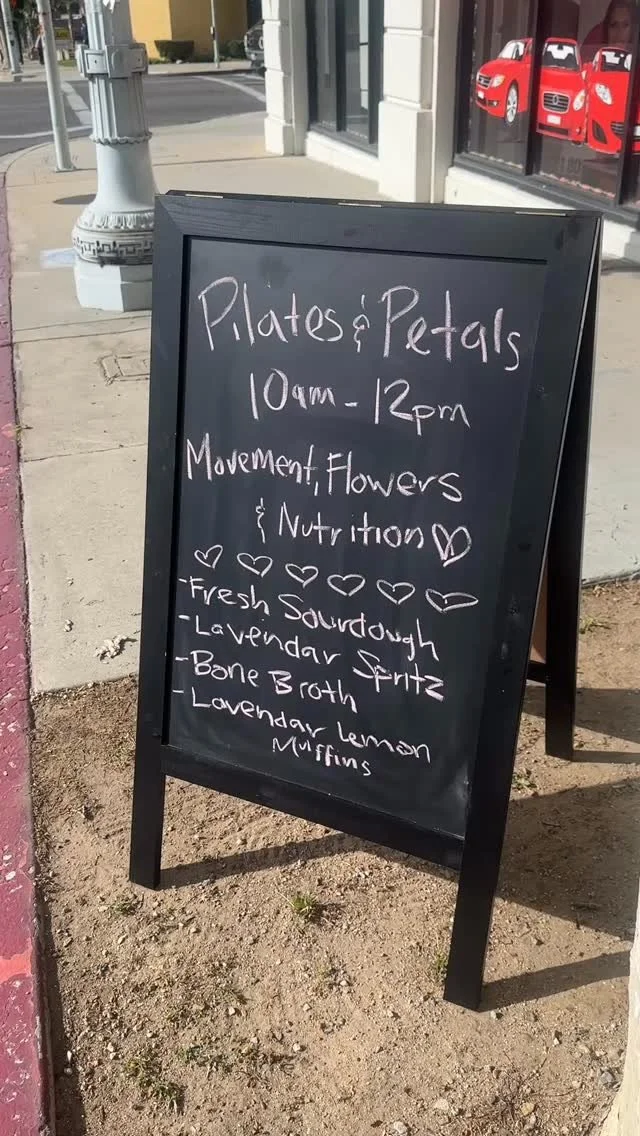 Pilates & Petals
10am - 12pm
Movement, Flowers
& Nutrition
- Fresh Sourdough
- Lavendar Spritz
- Bone Broth
- Lavendar Lemon
Muffins